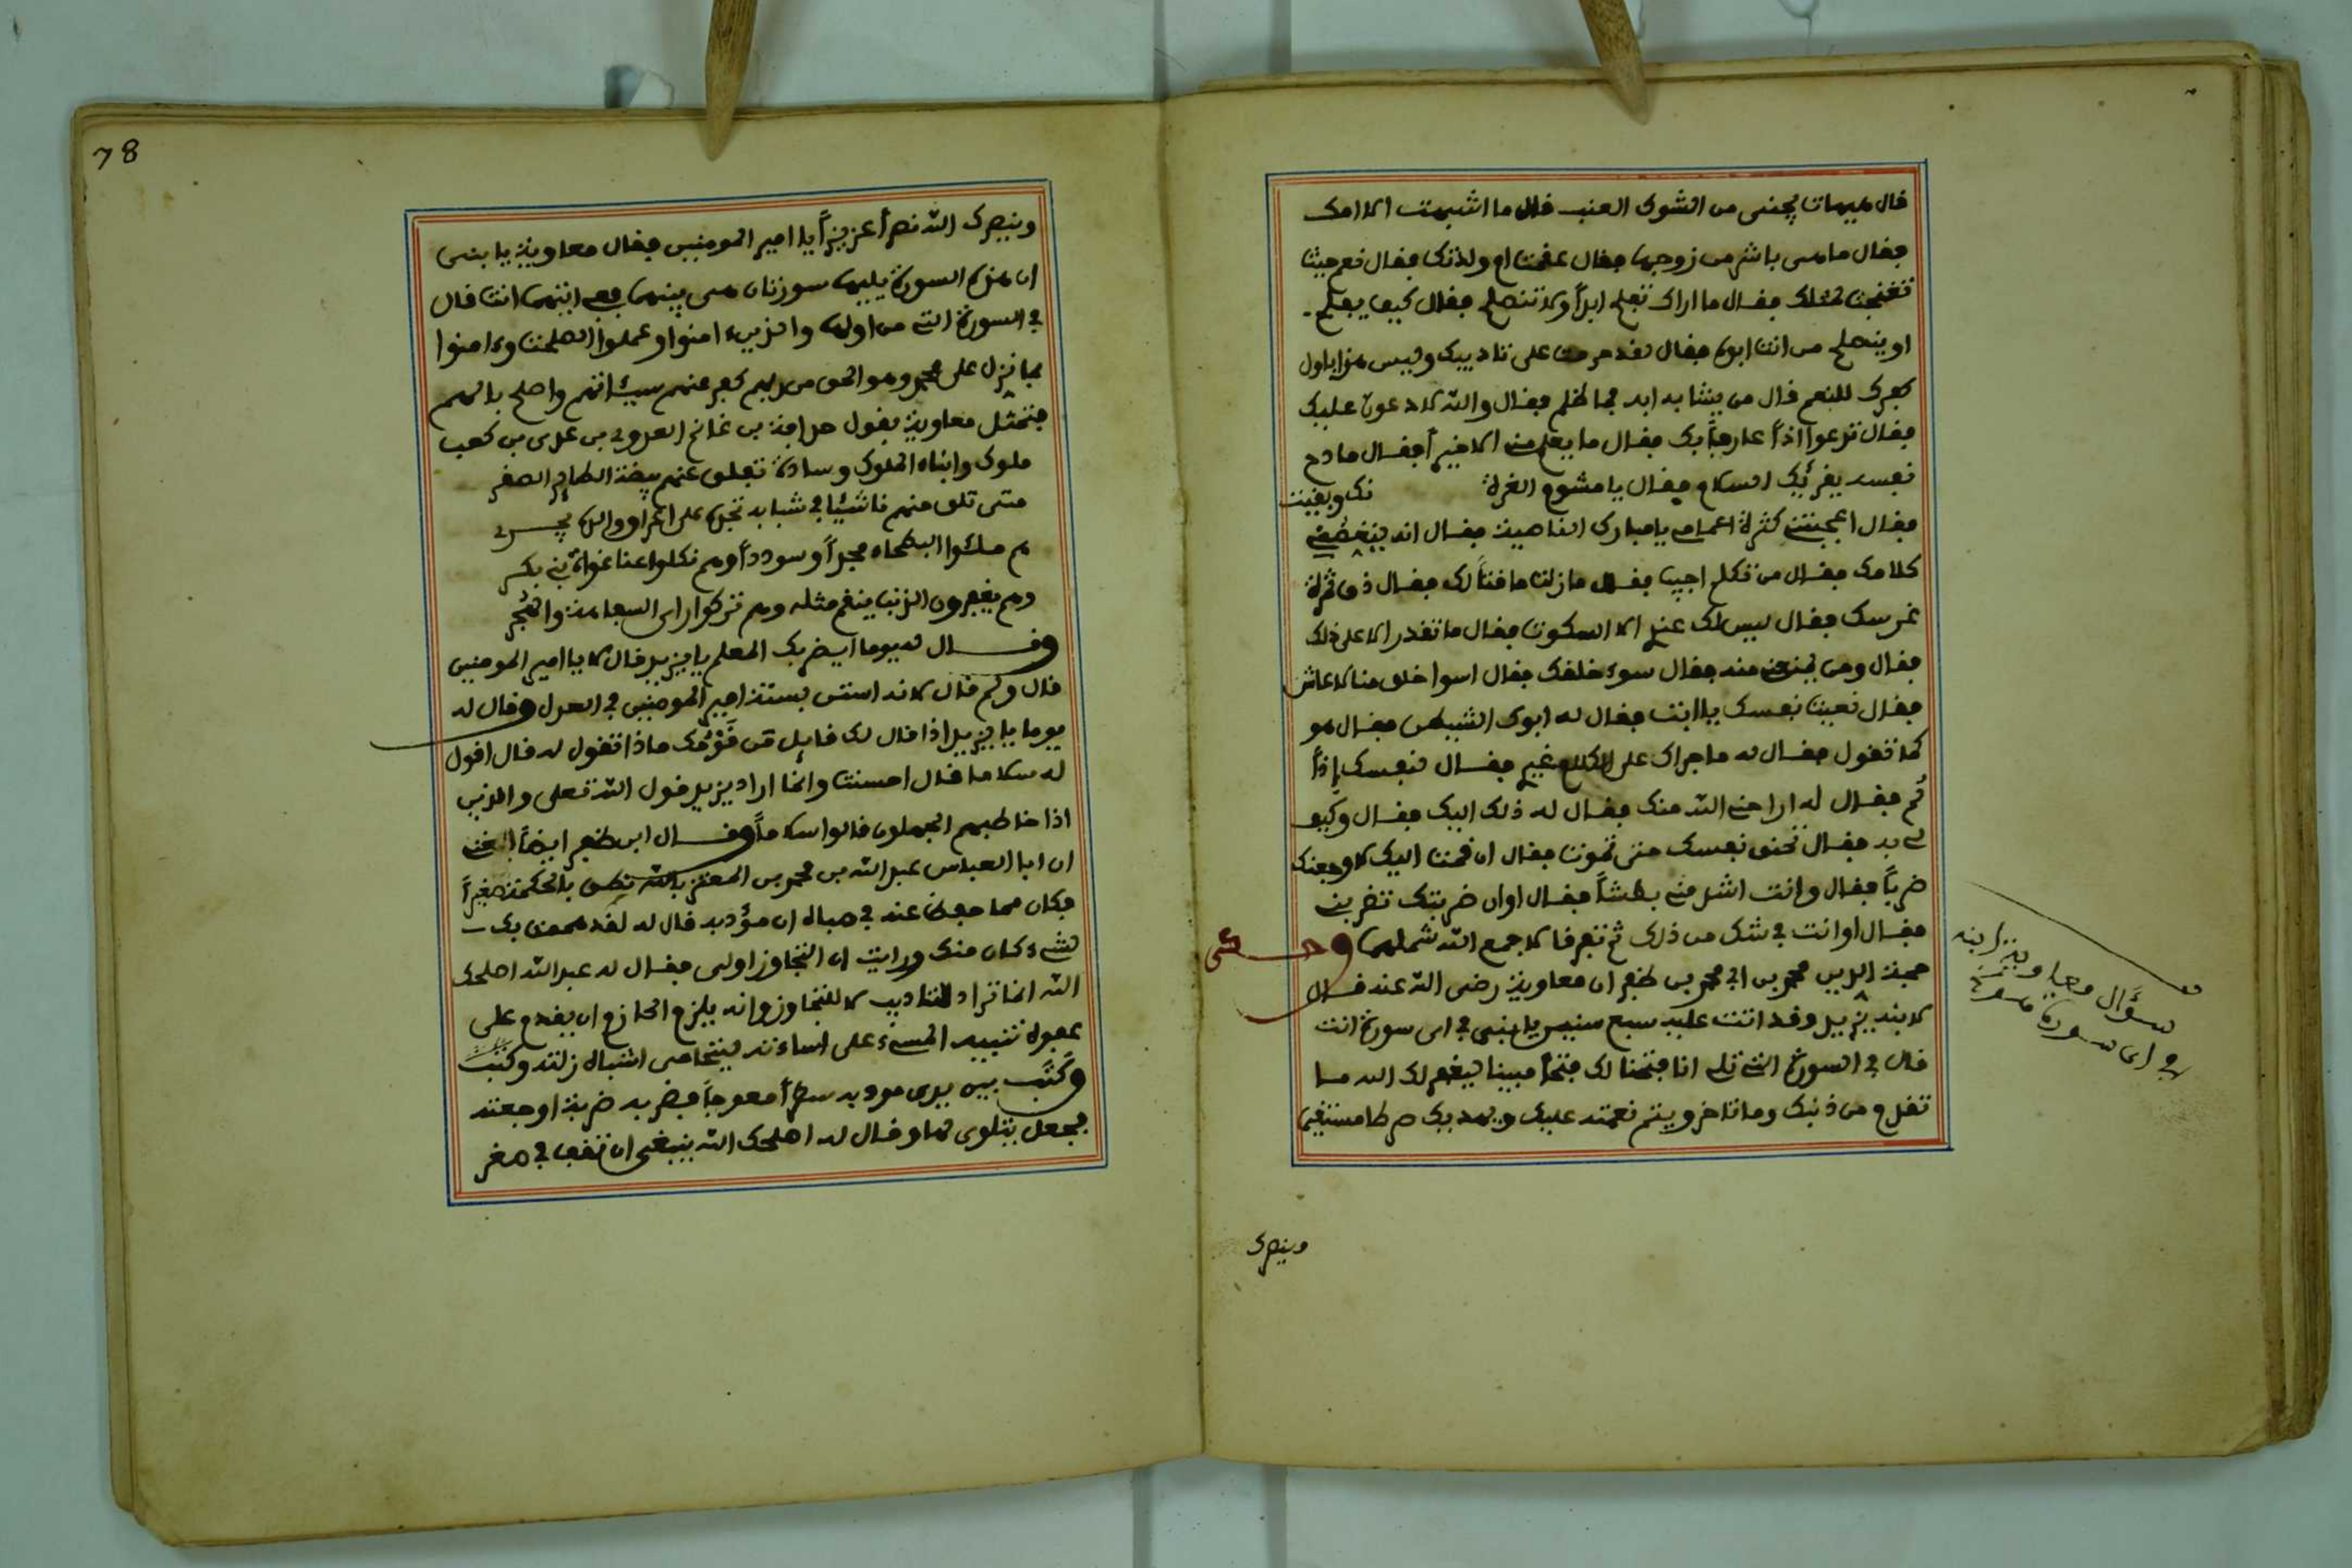 قال هيهات يجنى من الشوك العنب قال ما اشبهت الا امك
فقال ما هى باشر من زوجها فقال عقمت ام ولدتك فقال نعم حيث
تغنجت لمثلك فقال ما اراك تفلح ابدا ولا تنصلح فقال كيف يفلح
او ينصلح من انت ابوه فقال لقد حرمت على تاديبك وليس هذا باول
كفرك للنعم قال من يشابه ابه فما ظلم فقال والله لادعون عليك
فقال تدعوا اذا عارفا بك فقال ما يعلم منى الا خيرا فقال مادح
نفسه يقرئك السلام فقال يا مشوم الغرة
فقال اعجبتنى كثرة اعمامى يا مبارك الناصية فقال انه ليغضنى
كلامك فقال من تكلم اجيب فقال ما زلت ما قتا لك فقال ذى ثمرة
غرسك فقال ليس لك عندى الا السكوت فقال ما تقدر الا على ذلك
فقال ومن يمنعنى منه فقال سوء خلقك فقال اسوا خلق منا لاعاش
فقال نعيت نفسك يا ابت فقال له ابوك الشيطان فقال هو
كما تقول فقال له ما جراك على الكلام غيرى فقال نفسك إذا
ثم فقال له اراحنى الله منك فقال له ذلك اليك فقال وكيف
لى به فقال تخنق نفسك حتى تموت فقال ان قمت اليك لاوجعنك
ضربا فقال وانت اشد منى بطشا فقال اوان ضربتك تضربنى
فقال اوانت فى شك من ذلك ثم تفرقا لا جمع الله شملهما وحكى
حجة الدين محمد بن ابى محمد بن ظفر ان معاوية رضى الله عنه قال
لابنه يزيد وقد اتت عليه سبع سنين يا بنى فى اى سورة انت
قال فى السورة التى تلى انا فتحنا لك فتحا مبينا ليغفر لك الله ما
تقدم من ذنبك وما تاخر ويتم نعمته عليك ويهديك صرطا مستقيما
سؤال معاوية ابنه
فى اى سورة
وينصرك
78
وينصرك الله نصرا عزيزا يا امير المومنين فقال معاوية يا بنى
ان هذه السورة يليها سورتان هى بينهما ففى ايتهما انت قال
فى السورة التى من اولها والذين ءامنوا وعملوا الصلحت وءامنوا
بما نزل على محمد وهو الحق من ربهم كفر عنهم سيئاتهم واصلح بالهم
فتمثل معاوية بقول حذافة بن غانم العدوى من عدى بن كعب
ملوك وابناء الملوك وسادة تفلق عنهم بيضة الطاير الصقر
متى تلق منهم ناشئا فى شبابه تجده على اعراق والده يجرى
هم ملئوا البطحاء مجدا وسوددا وهم نكلوا عنا غواة بنى بكر
وهم يغفرون الذنب ينقم مثله وهم تركوا راى السفاهة والهجر
وقال له يوما ايضربك المعلم يا يزيد قال لا يا امير المومنين
قال ولم قال لانه استن بسنة امير المومنين فى العدل وقال له
يوما يا يزيد اذا قال لك قايل من قومك ماذا تقول له قال اقول
له سلاما قال احسنت وانما اراد يزيد قول الله تعلى والذين
اذا خاطبهم الجهلون قالوا سلاما وقال ابن ظفر ايضا بلغنى
ان ابا العباس عبد الله بن محمد بن المعتز بالله نطق بالحكمة صغيرا
فكان مما حفظ عنه فى صباه ان مؤدبه قال له لقد هممت بك
لشىء كان منك ورايت ان التجاوز اولى فقال له عبد الله اصلحك
الله انما تراد للتاديب لا للتجاوز وانه يلزم الحازم ان يقدم على
عفوه تنبيه المسىء على اساءته ليتحامى اشباه زلته وكتب
وكتب بين يدى مودبه سطرا معوجا فضربه ضربة اوجعته
فجعل يتلوى لها وقال له اصلحك الله ينبغى ان تقف فى صغر